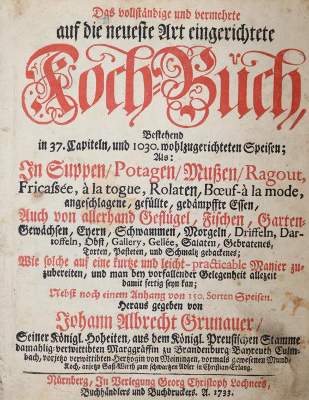 Das vollständige und vermehrte
auf die neueste Art eingerichtete
Koch-Buch,
Bestehend
in 37. Capiteln, und 1030. wohlzugerichteten Speisen;
Als:
In Suppen/ Potagen/ Mußen/ Ragout,
Fricaßée, à la togue, Rolaten, Bœuf-à la mode,
angeschlagene, gefüllte, gedämpffte Essen,
Auch von allerhand Geflügel, Fischen, Garten-
Gewächsen, Eyern, Schwammen, Morgeln, Driffeln, Dar-
toffeln, Obst, Gallery, Gellée, Salaten, Gebratenes,
Torten, Pasteten, und Schmaltz gebackenes;
Wie solche auf eine kurtze und leicht-practicable Manier zu-
zubereiten, und man bey vorfallender Gelegenheit allezeit
damit fertig seyn kan;
Nebst noch einem Anhang von 150. Sorten Speisen.
Heraus gegeben von
Johann Albrecht Grunauer/
Seiner Königl. Hoheiten, aus dem Königl. Preußischen Stamme
damahlig-verwittibten Marggräffin zu Brandenburg Bayreuth Culm-
bach, vorjetzo verwittibten Hertzogin von Meiningen, vormals gewesenen Mund-
Koch, anjetzo Gast-Wirth zum schwartzen Adler in Christian-Erlang.
Nürnberg, In Verlegung Georg Christoph Lochners,
Buchhändlers und Buchdruckers. A. 1733.